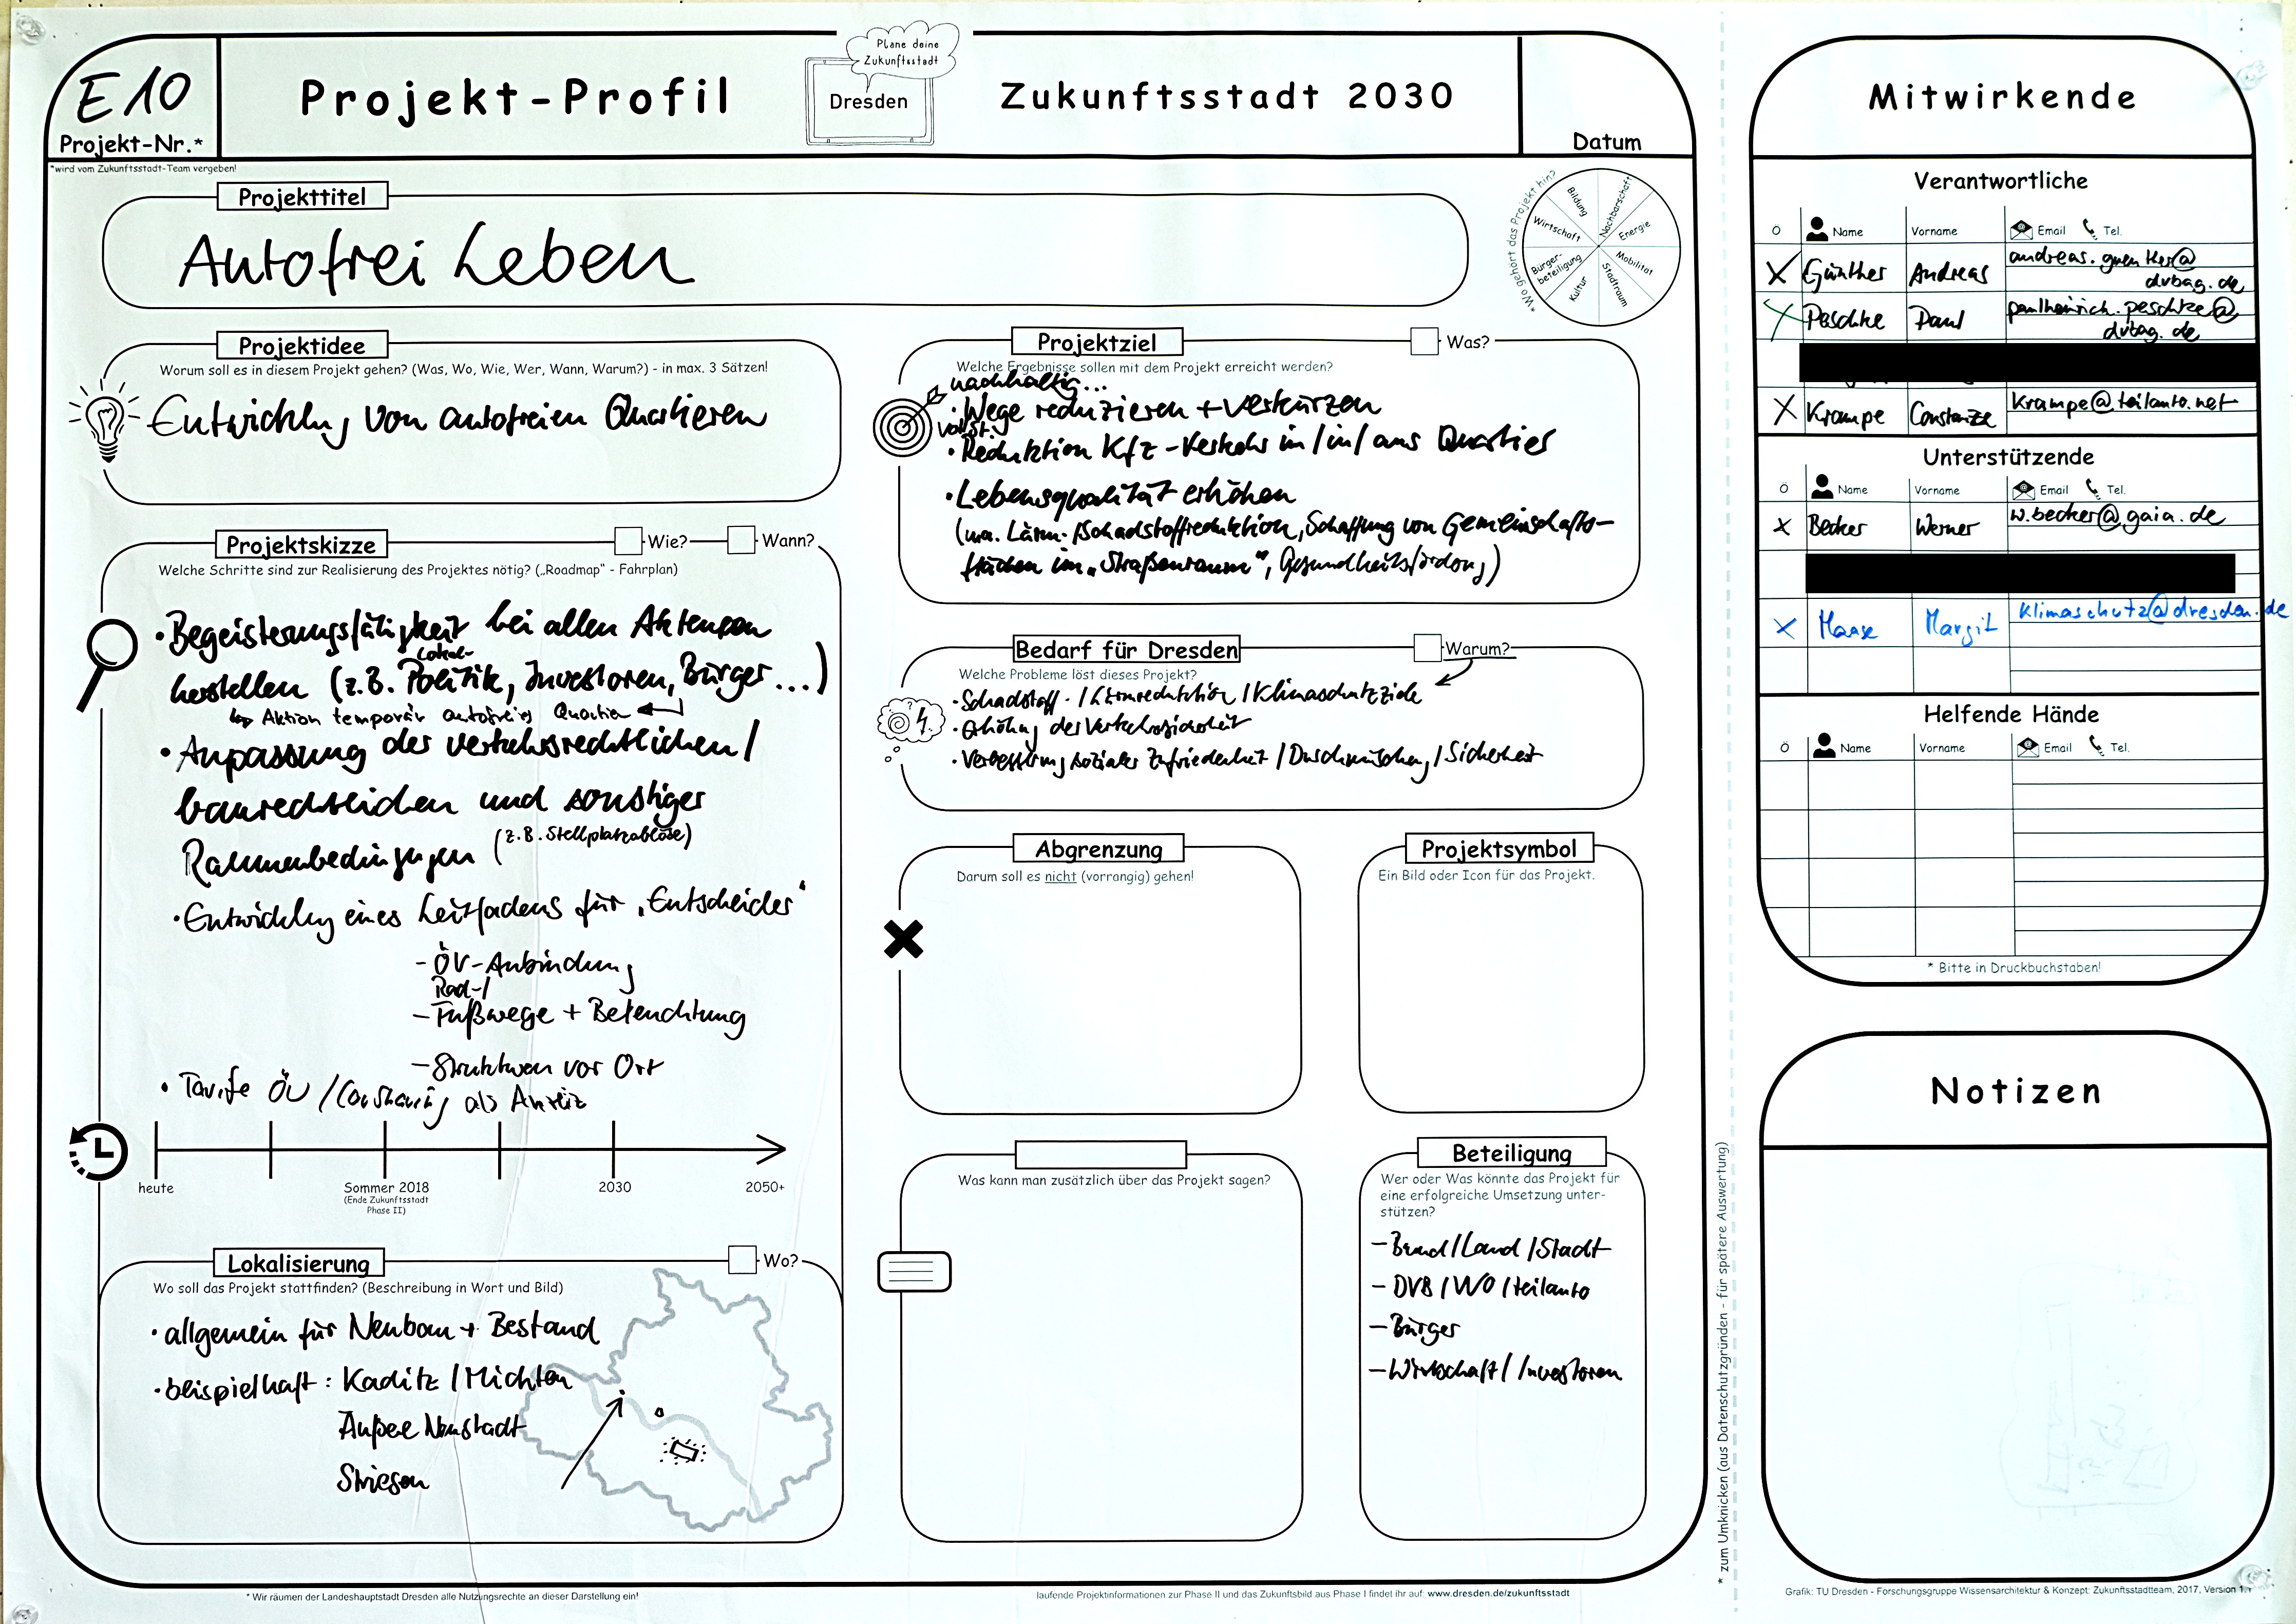 E10
Projekt-Nr.*
*wird vom Zukunftsstadt-Team vergeben!
Projekt-Profil
Plane deine
Zukunftsstadt
Dresden
Zukunftsstadt 2030
Datum
Projekttitel
Autofrei Leben
* Wo gehört das Projekt hin?
Bildung
Nachbarschaft
Energie
Mobilität
Stadtraum
Kultur
Bürger-
beteiligung
Wirtschaft
Projektidee
Worum soll es in diesem Projekt gehen? (Was, Wo, Wie, Wer, Wann, Warum?) - in max. 3 Sätzen!
Entwicklung von autofreien Quartieren
Projektskizze
Wie?
Wann?
Welche Schritte sind zur Realisierung des Projektes nötig? („Roadmap" - Fahrplan)
• Begeisterungsfähigkeit bei allen Akteuren
Lokal-
herstellen (z.B. Politik, Investoren, Bürger ...)
Aktion temporär autofreies Quartier
• Anpassung der verkehrsrechtlichen /
baurechtlichen und sonstiger
Rahmenbedingungen (z.B. Stellplatzablöse)
• Entwicklung eines Leitfadens für „Entscheider"
- ÖV-Anbindung
Rad-/
- Fußwege + Beleuchtung
- Strukturen vor Ort
• Tarife ÖV / Carsharing als Anreiz
heute
Sommer 2018
(Ende Zukunftsstadt
Phase II)
2030
2050+
Lokalisierung
Wo?
Wo soll das Projekt stattfinden? (Beschreibung in Wort und Bild)
• allgemein für Neubau + Bestand
• beispielhaft: Kaditz / Mickten
Äußere Neustadt
Striesen
Projektziel
Was?
Welche Ergebnisse sollen mit dem Projekt erreicht werden?
nachhaltig...
• Wege reduzieren + verkürzen
vollst.
• Reduktion Kfz-Verkehr im / in / aus Quartier
• Lebensqualität erhöhen
(u.a. Lärm- / Schadstoffreduktion, Schaffung von Gemeinschafts-
flächen im „Straßenraum", Gesundheitsförderung)
Bedarf für Dresden
Warum?
Welche Probleme löst dieses Projekt?
• Schadstoff- / Lärmreduktion / Klimaschutzziele
• Erhöhung der Verkehrssicherheit
• Verbesserung sozialer Zufriedenheit / Durchmischung / Sicherheit
Abgrenzung
Darum soll es nicht (vorrangig) gehen!
Projektsymbol
Ein Bild oder Icon für das Projekt.
Was kann man zusätzlich über das Projekt sagen?
Beteiligung
Wer oder Was könnte das Projekt für
eine erfolgreiche Umsetzung unter-
stützen?
- Bund / Land / Stadt
- DVB / VVO / teilauto
- Bürger
- Wirtschaft / Investoren
* Wir räumen der Landeshauptstadt Dresden alle Nutzungsrechte an dieser Darstellung ein!
laufende Projektinformationen zur Phase II und das Zukunftsbild aus Phase I findet ihr auf: www.dresden.de/zukunftsstadt
* zum Umknicken (aus Datenschutzgründen - für spätere Auswertung)
Mitwirkende
Verantwortliche
Ö Name Vorname Email Tel.
X Günther Andreas andreas.guenther@
dvbag.de
X Peschke Paul paulheinrich.peschke@
dvbag.de
X Krampe Constanze krampe@teilauto.net
Unterstützende
Ö Name Vorname Email Tel.
x Becker Werner w.becker@gaia.de
X Haase Margit klimaschutz@dresden.de
Helfende Hände
Ö Name Vorname Email Tel.
* Bitte in Druckbuchstaben!
Notizen
Grafik: TU Dresden - Forschungsgruppe Wissensarchitektur & Konzept: Zukunftsstadtteam, 2017, Version 1.1